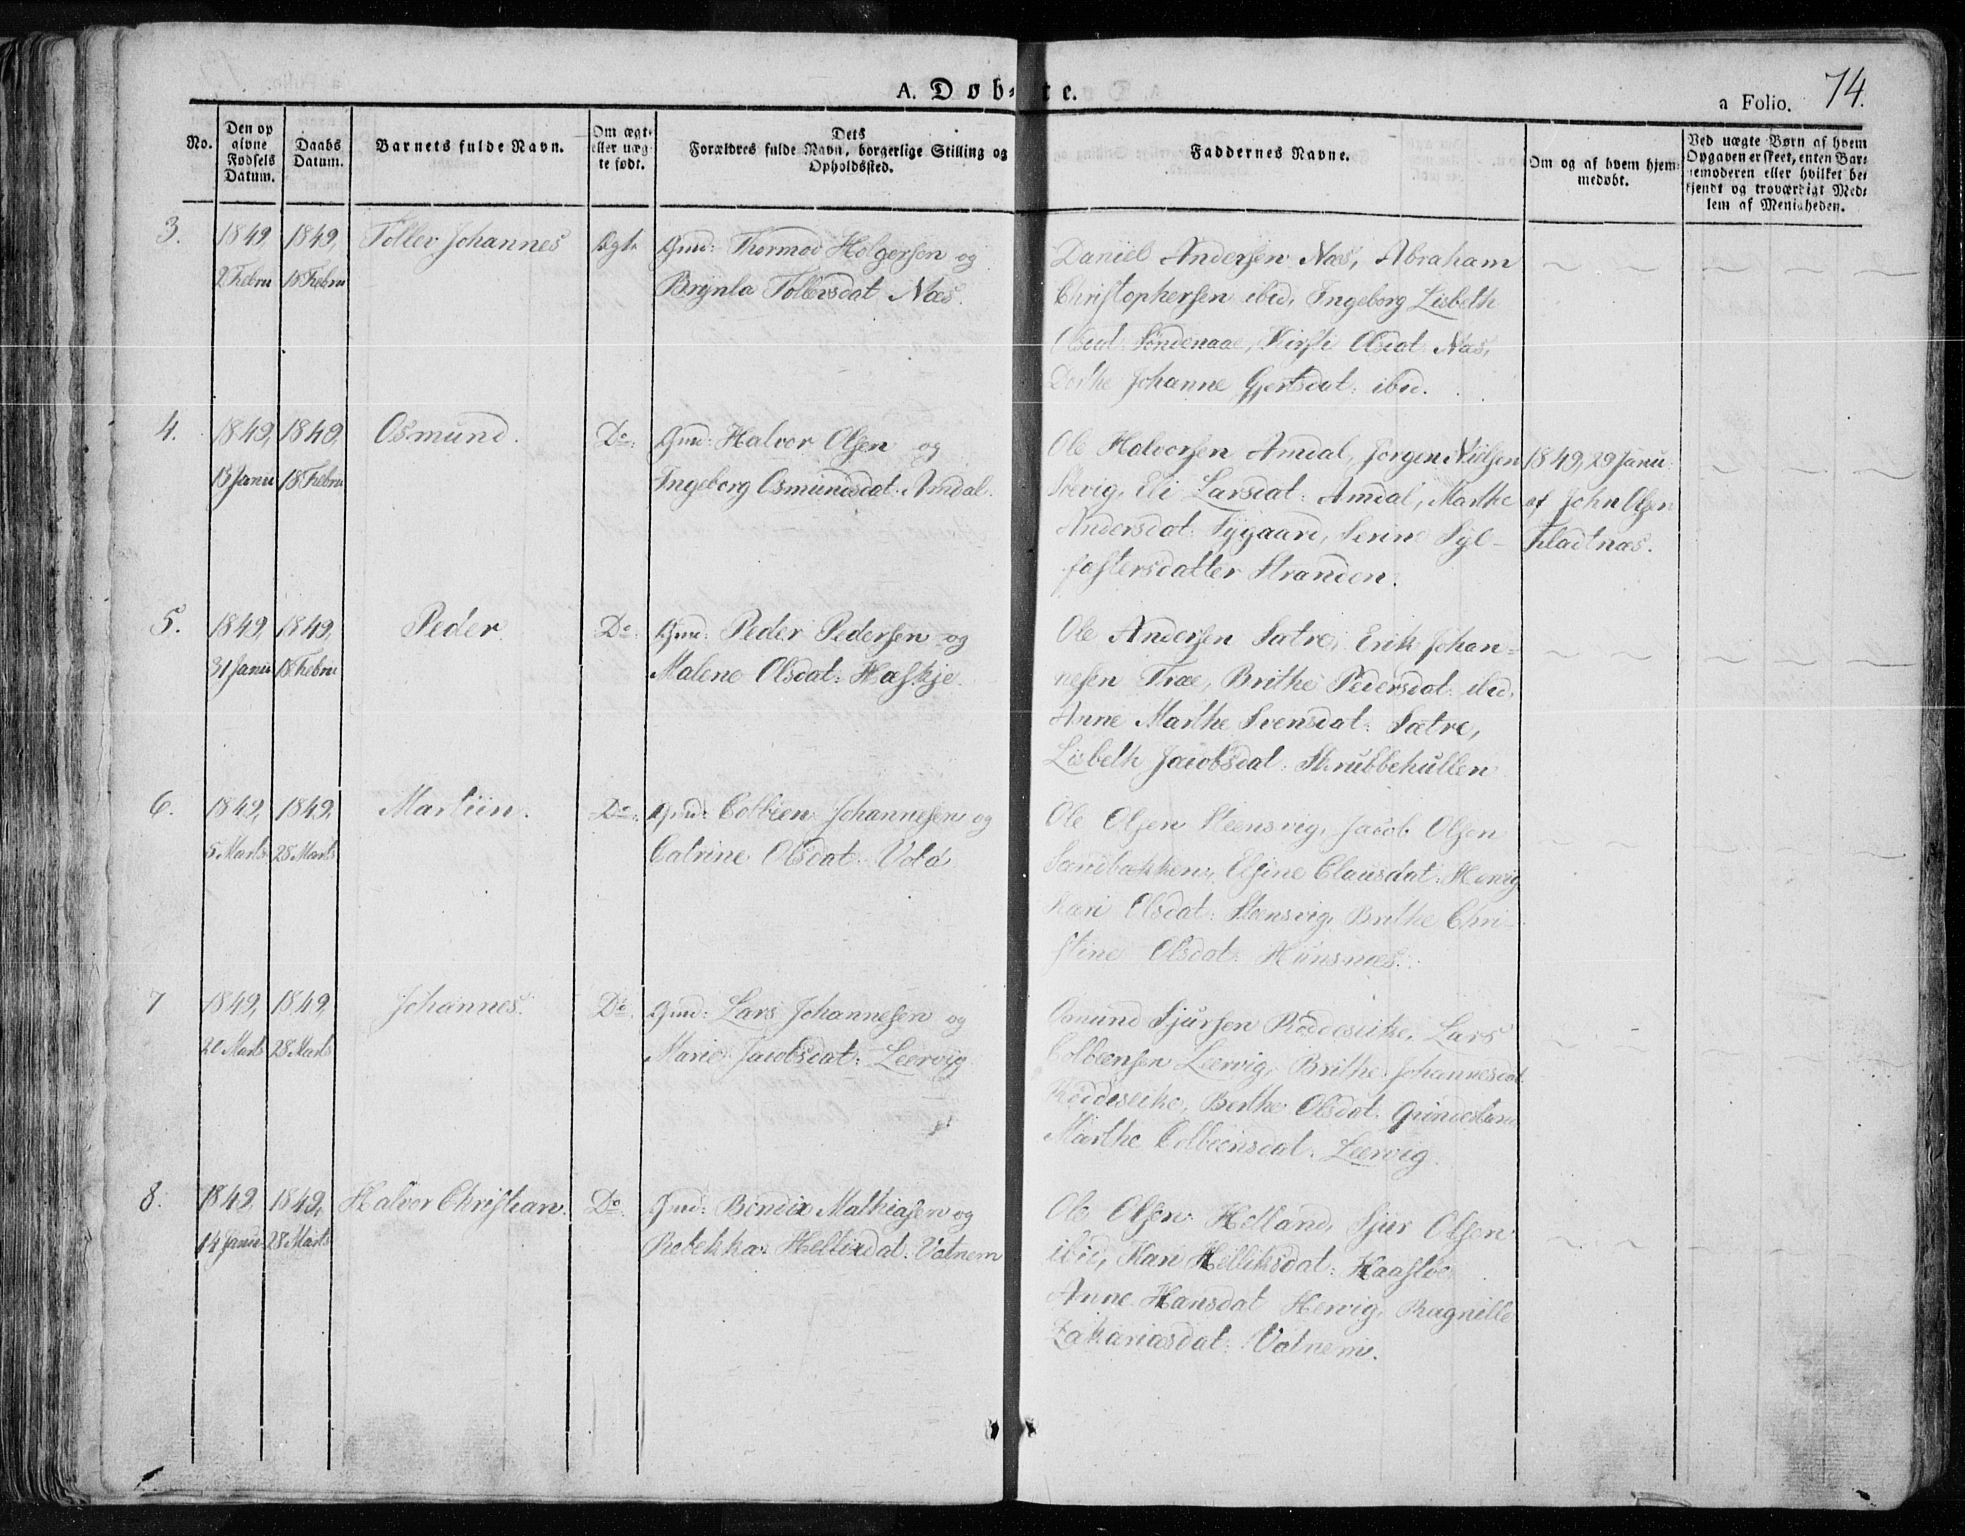 74.
A. Døb-te.
a Folio.
No.
Den op
givne
Fødsels
Datum.
Daabs
Datum.
Barnets fulde Navn.
Om ægt-
eller uæg-
te født.
Dets
Forældres fulde Navn, borgerlige Stilling og
Opholdssted.
Faddernes Navne.
Om og af hvem hjem-
medøbt.
Ved uægte Børn af hvem
Opgaven er skeet, enten Bar-
nemoderen eller hvilket be-
kjendt og troværdigt Med-
lem af Menigheden.
3.
1849
2 Febru
1849,
18 Febru
Tollev Johannes
Ægte
Gmd: Thormod Holgersen og
Brynla Tollevsdat. Næs.
Daniel Andersen Næs, Abraham
Christophersen ibid, Ingeborg Lisbeth
Olsdat. Søndenaae, Kirsti Olsdat. Næs,
Dorthe Johanne Gjertsdat: ibid.
4.
1849,
13 Janu
1849,
18 Febru
Osmund.
Do.
Gmd: Halvor Olsen og
Ingeborg Osmundsdat. Amdal.
Ole Halvorsen Amdal, Jørgen Nielsen
Solvig, Eli Larsdat: Amdal, Marthe
Andersdat. Tygaard, Serine Syl-
festersdatter Stranden.
1849, 29 Janu:
af John Olsen
Fladtnæs.
5.
1849,
31 Janu
1849,
18 Febru
Peder
Do.
Gmd: Peder Pedersen og
Malene Olsdat: Hæskje.
Ole Andersen Sætre, Erik Johan-
nesen Træe, Brithe Pedersdat. ibid,
Anne Marthe Svensdat: Sætre,
Lisbeth Jacobsdat. Skrubbehullen
6.
1849,
5 Marts
1849,
28 Marts
Martiin.
Do.
Gmd: Colbeen Johannesen og
Catrine Olsdat. Vola
Ole Olsen Steensvig, Jacob Olsen
Sandbækken, Elsine Clausdat: Hervig
Kari Olsdat: Steensvig, Brithe Chri-
stine Olsdat. Hunsnæs.
7
1849,
20 Marts
1849,
28 Marts
Johannes.
Do.
Gmd: Lars Johannesen og
Marie Jacobsdat: Leervig.
Osmund Sjursen Røddeseike, Lars
Colbeensen Leervig, Brithe Johannesdat
Røddeseike, Berthe Olsdat.
Marthe Colbeensdat. Leervig.
8.
1849,
14 Janu
1849,
28 Marts
Halvor Christian.
Do.
Gmd: Bendix Mathiasen og
Rebekka Hellixdat: Vatnem
Ole Olsen Helland, Sjur Olsen
ibid, Kari Helliksdat: Kaasloe
Anne Hansdat Hervig, Ragnille
Zakariasdat: Vatnem.